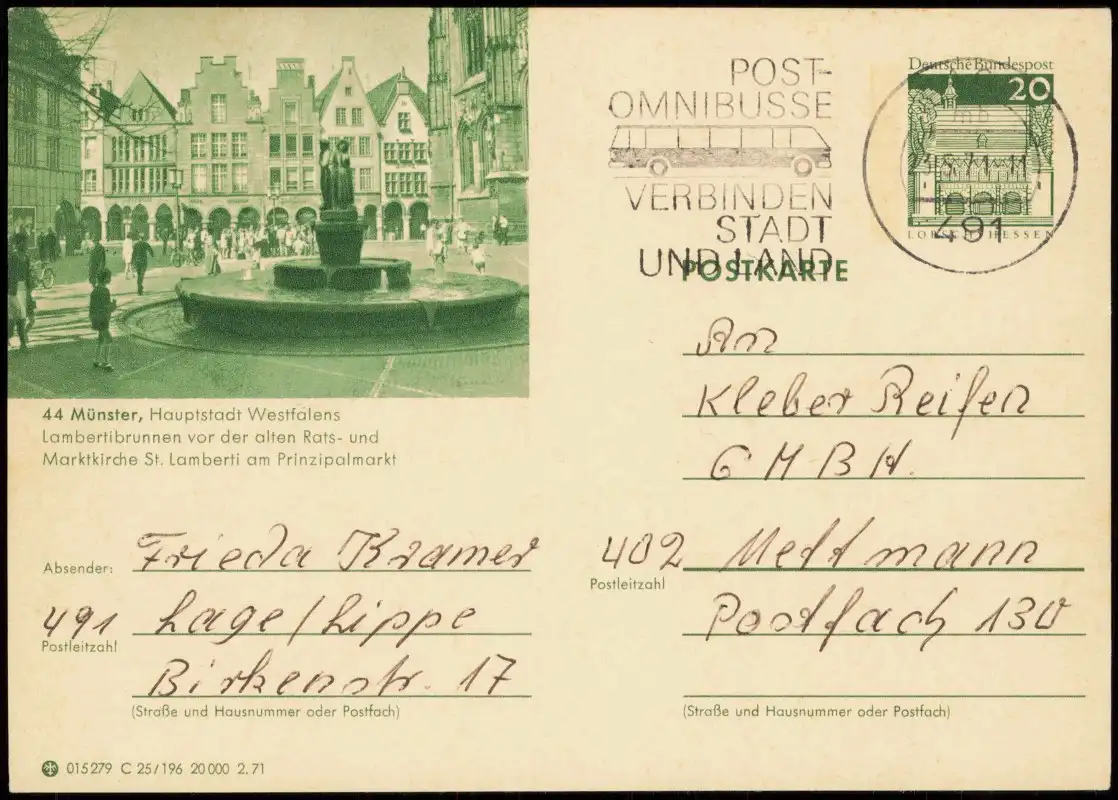 POST-
OMNIBUSSE
VERBINDEN
STADT
UND LAND
Deutsche Bundespost
20
LORSCH/HESSEN
491
POSTKARTE
44 Münster, Hauptstadt Westfalens
Lambertibrunnen vor der alten Rats- und
Marktkirche St. Lamberti am Prinzipalmarkt
An
Kleber Reifen
GMBH.
402 Mettmann
Postleitzahl
Postfach 130
(Straße und Hausnummer oder Postfach)
Absender: Frieda Kramer
491 Lage/Lippe
Postleitzahl
Birkenstr. 17
(Straße und Hausnummer oder Postfach)
015279 C 25/196 20 000 2.71